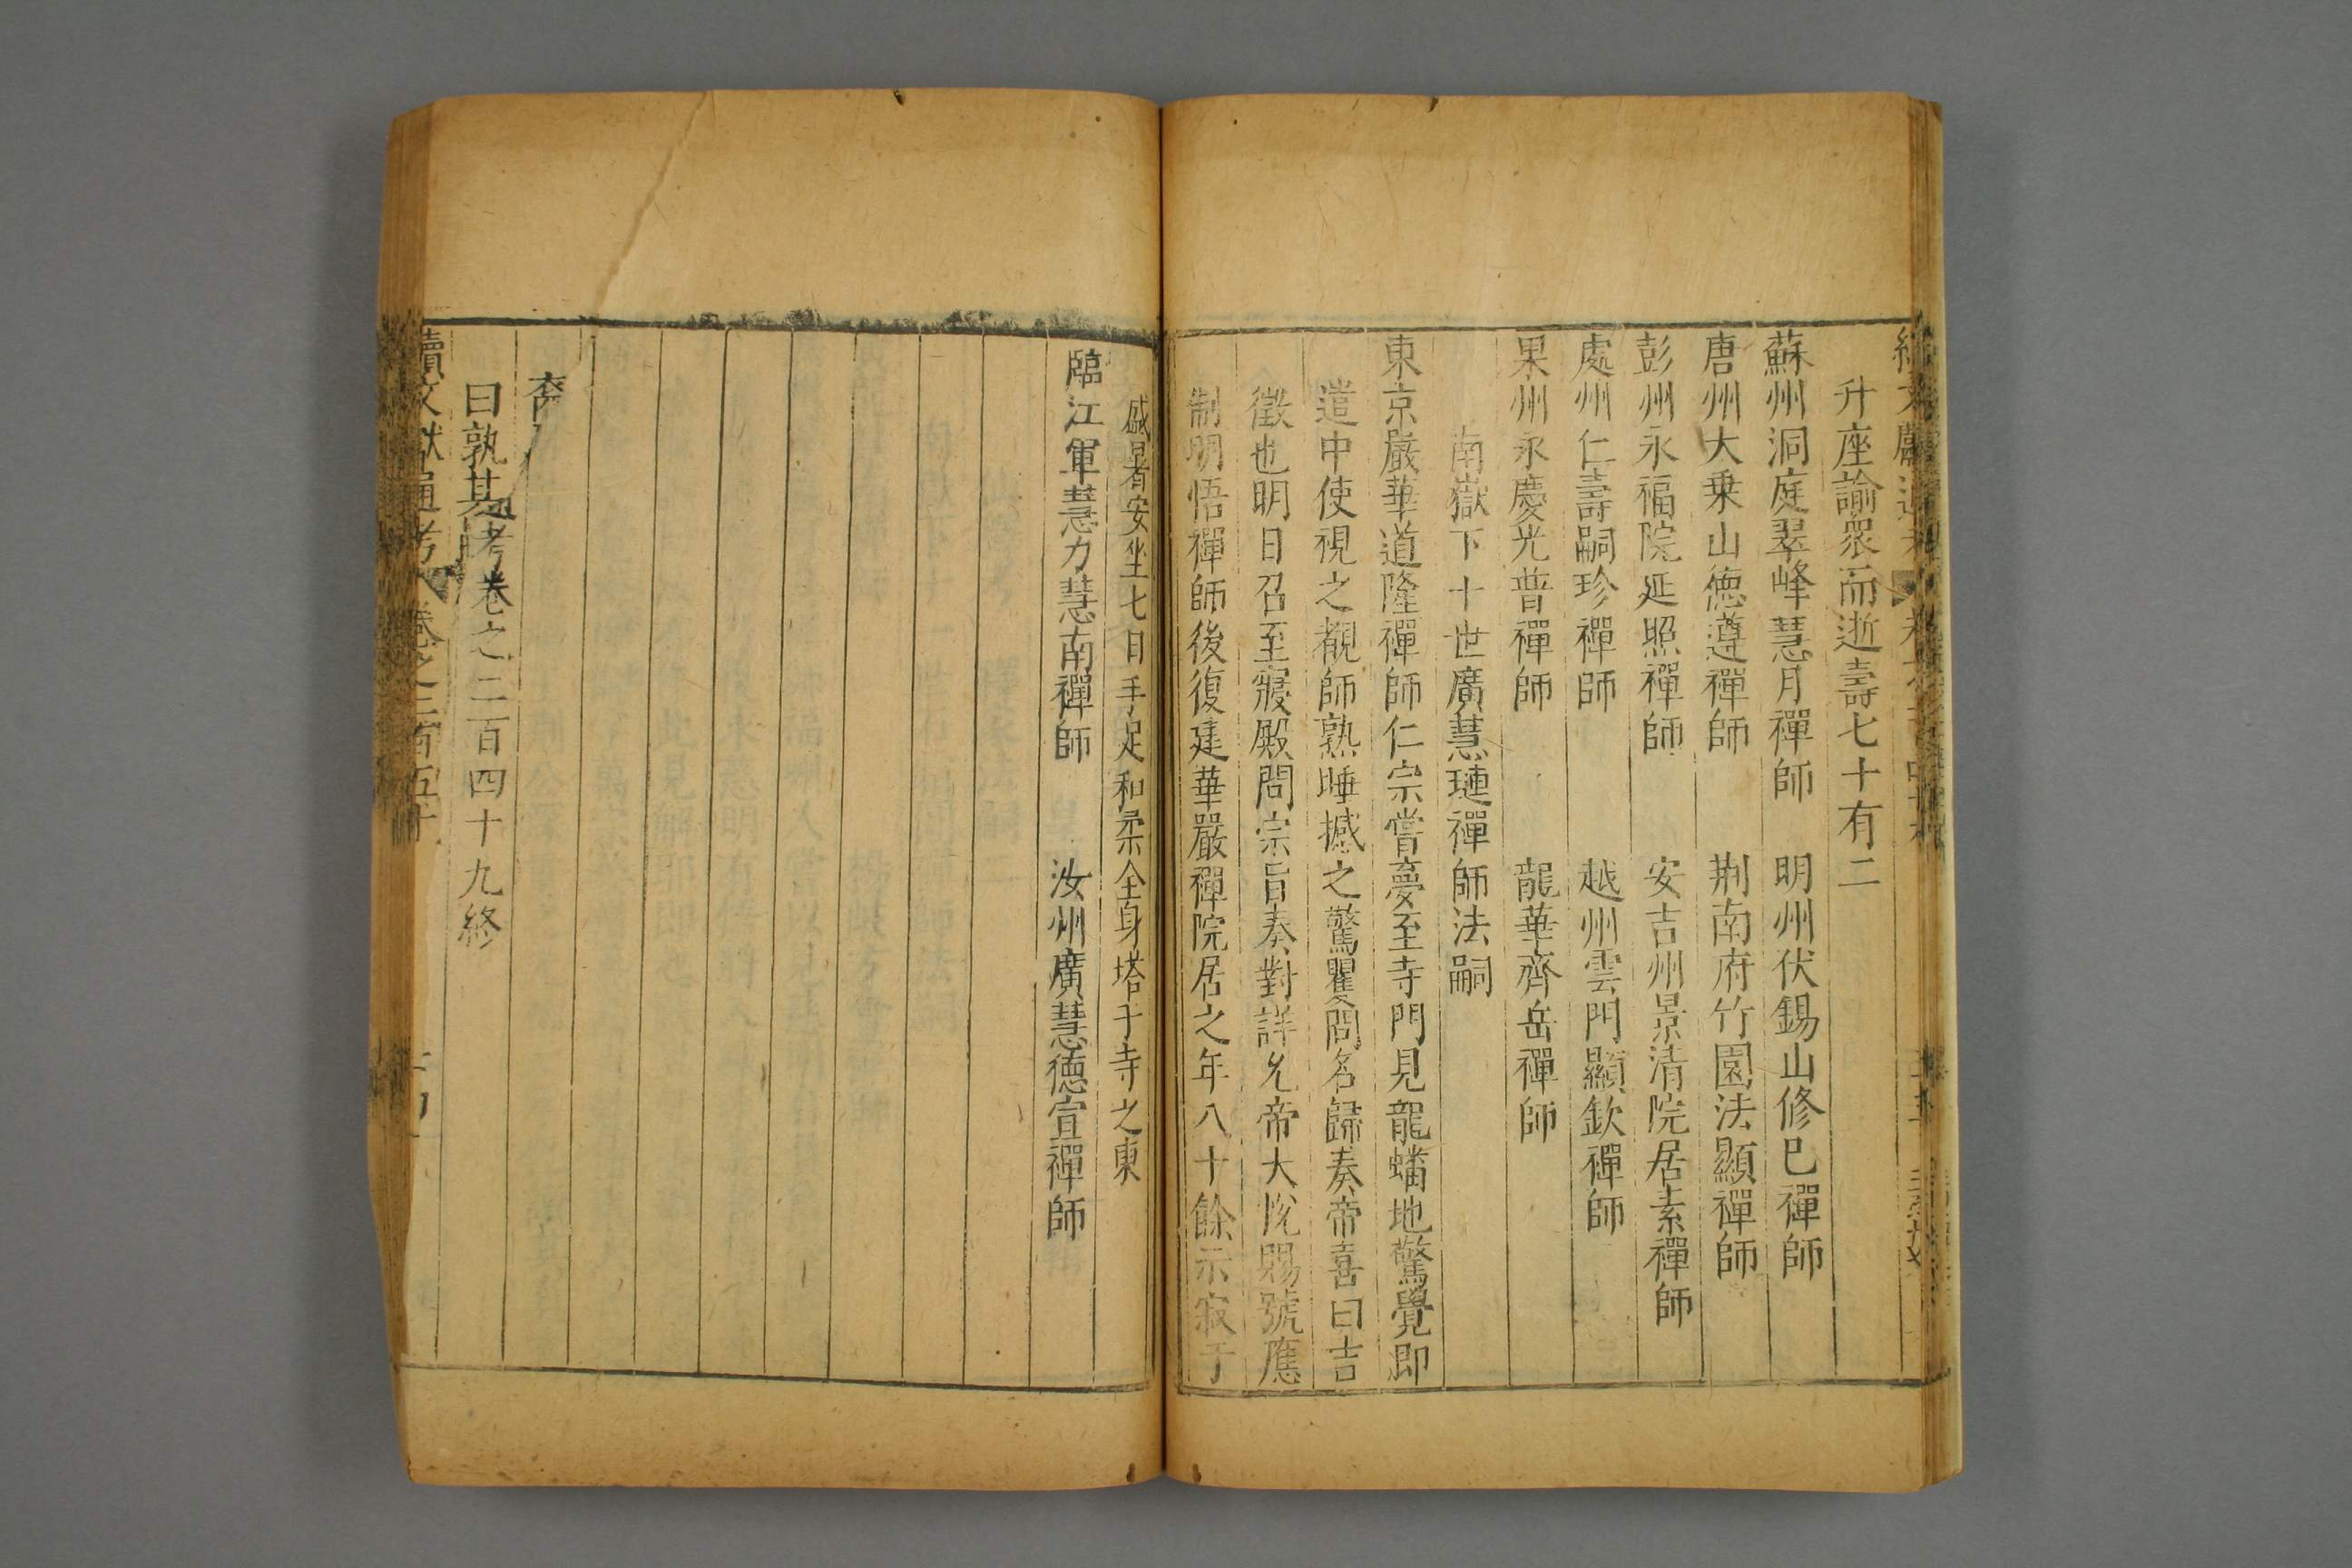 升座諭衆而逝壽七十有二
蘇州洞庭翠峰慧月禪師　明州伏錫山修巳禪師
唐州大乗山德遵禪師　荆南府竹園法顯禪師
彭州永福院延照禪師　安吉州景清院居素禪師
處州仁壽嗣珍禪師　越州雲門顯欽禪師
果州永慶光普禪師　龍華齊岳禪師
南嶽下十世廣慧璉禪師法嗣
東京嚴華道隆禪師仁宗嘗夢至寺門見龍蟠地驚覺即
遣中使視之覩師熟睡撼之驚矍問名歸奏帝喜曰吉
徵也明日召至寢殿問宗旨奏對詳允帝大悅賜號應
制明悟禪師後復建華嚴禪院居之年八十餘示寂于
盛暑安坐七日手足和柔全身塔于寺之東
臨江軍慧力慧南禪師　汝州廣慧德宣禪師
曰孰其考卷之二百四十九終
續文獻通考 卷之二百五十